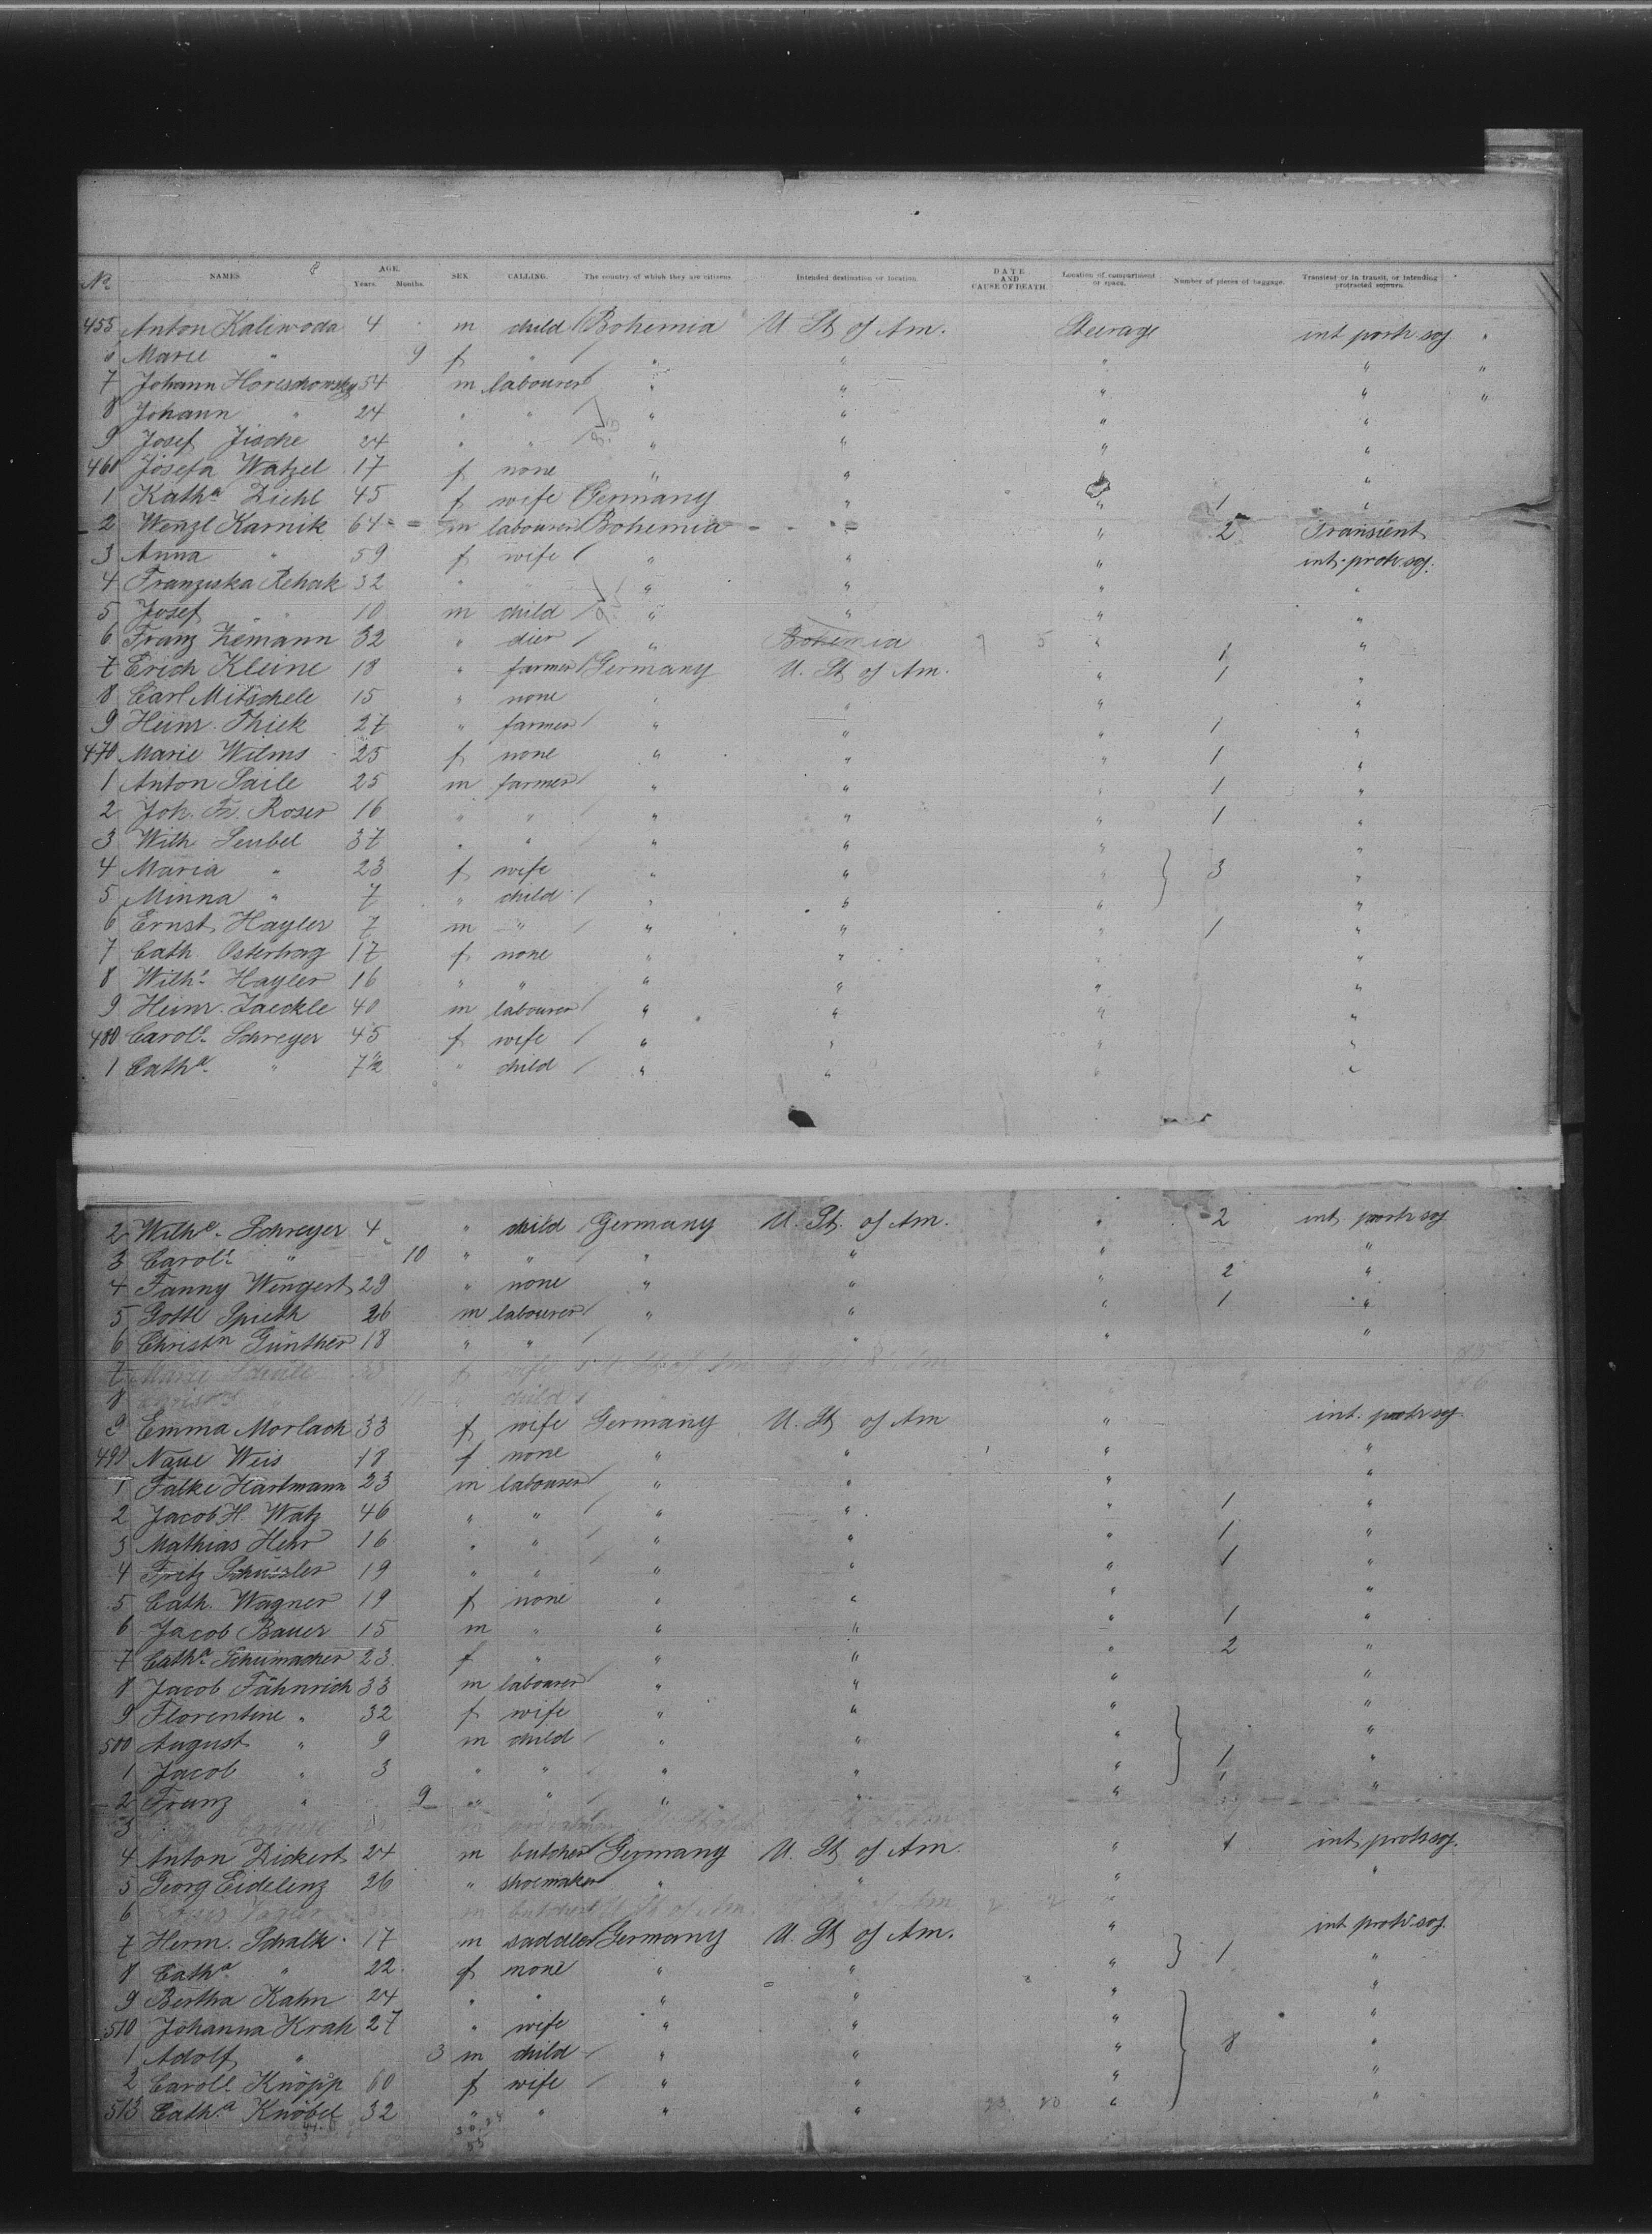 No. NAMES. AGE. Years. Months. SEX. CALLING. The country of which they are citizens. Intended destination or location. DATE AND CAUSE OF DEATH. Location of compartment or space. Number of pieces of baggage. Transient or in transit, or intending protracted sojourn.
455 Anton Kaliwoda 4 m child Bohemia U. St. of Am. Steerage int. protr. soj.
6 Marie " 9 f " " " " "
7 Johann Horeschowsky 54 m labourer " " " "
8 Johann " 24 " " " " " "
9 Josef Jische 24 " " " " " "
460 Josefa Watzel 17 f none " " " "
1 Katha. Diehl 45 f wife Germany " " 1 "
2 Wenzl Karnik 64 m labourer Bohemia " " 2 Transient
3 Anna " 59 f wife " " " int. protr. soj.
4 Franziska Rehak 32 " " " " " "
5 Josef " 10 m child " " " "
6 Franz Zemann 32 " dier " Bohemia " 1 "
7 Erich Kleine 18 " farmer Germany U. St. of Am. " 1 "
8 Carl Mitschele 15 " none " " " "
9 Heinr. Thiek 27 " farmer " " " 1 "
470 Marie Wilms 25 f none " " " 1 "
1 Anton Saile 25 m farmer " " " 1 "
2 Joh. Fr. Roser 16 " " " " " 1 "
3 Wilh. Seubel 37 " " " " " "
4 Maria " 23 f wife " " " 3 "
5 Minna " 7 " child " " " "
6 Ernst Hayler 7 m " " " " 1 "
7 Cath. Osterhag 17 f none " " " "
8 Wilhe. Hayler 16 " " " " " "
9 Heinr. Jaeckle 40 m labourer " " " "
480 Carole. Schreyer 45 f wife " " " "
1 Catha. " 7½ " child " " " "
2 Wilhe. Schreyer 4 " child Germany U. St. of Am. " 2 int. protr. soj.
3 Carole. " 10 " " " " " "
4 Fanny Wingert 29 " none " " " 2 "
5 Gottl Spieth 26 m labourer " " " 1 "
6 Christn Günther 18 " " " " " "
7 Marie 33 f wife
8 child
9 Emma Morlach 33 f wife Germany U. St. of Am " int. protr. soj.
490 Nane Weis 18 f none " " " "
1 Falke Hartmann 23 m labourer " " " "
2 Jacob H. Watz 46 " " " " " 1 "
3 Mathias Hehr 16 " " " " " 1 "
4 Fritz Schüssler 19 " " " " " 1 "
5 Cath. Wagner 19 f none " " " "
6 Jacob Bauer 15 m " " " " 1 "
7 Catha. Schumacher 23 f " " " " 2 "
8 Jacob Fähnrich 33 m labourer " " " "
9 Florentine " 32 f wife " " " "
500 August " 9 m child " " " "
1 Jacob " 3 " " " " " 1 "
2 Franz " 9 " " " " " "
3
4 Anton Dickert 24 m butcher Germany U. St. of Am. " 1 int. protr. soj.
5 Georg Eidelinz 26 " shoemaker " " " "
6 m butcher
7 Herm. Schalk 17 m saddler Germany U. St. of Am. " int. protr. soj.
8 Catha. " 22 f none " " " 1 "
9 Bertha Kahn 24 " " " " " "
510 Johanna Krah 27 " wife " " " "
1 Adolf " 3 m child " " " 8 "
2 Carole. Knöpp 60 f wife " " " "
513 Catha. Knöbel 32 " " " " 23 20 " "